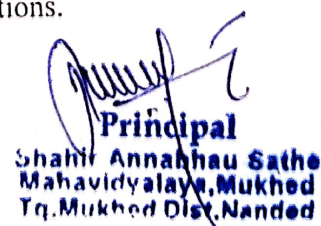 tions.
Principal
Shahir Annabhau Sathe
Mahavidyalaya, Mukhed
Tq.Mukhed Dist.Nanded